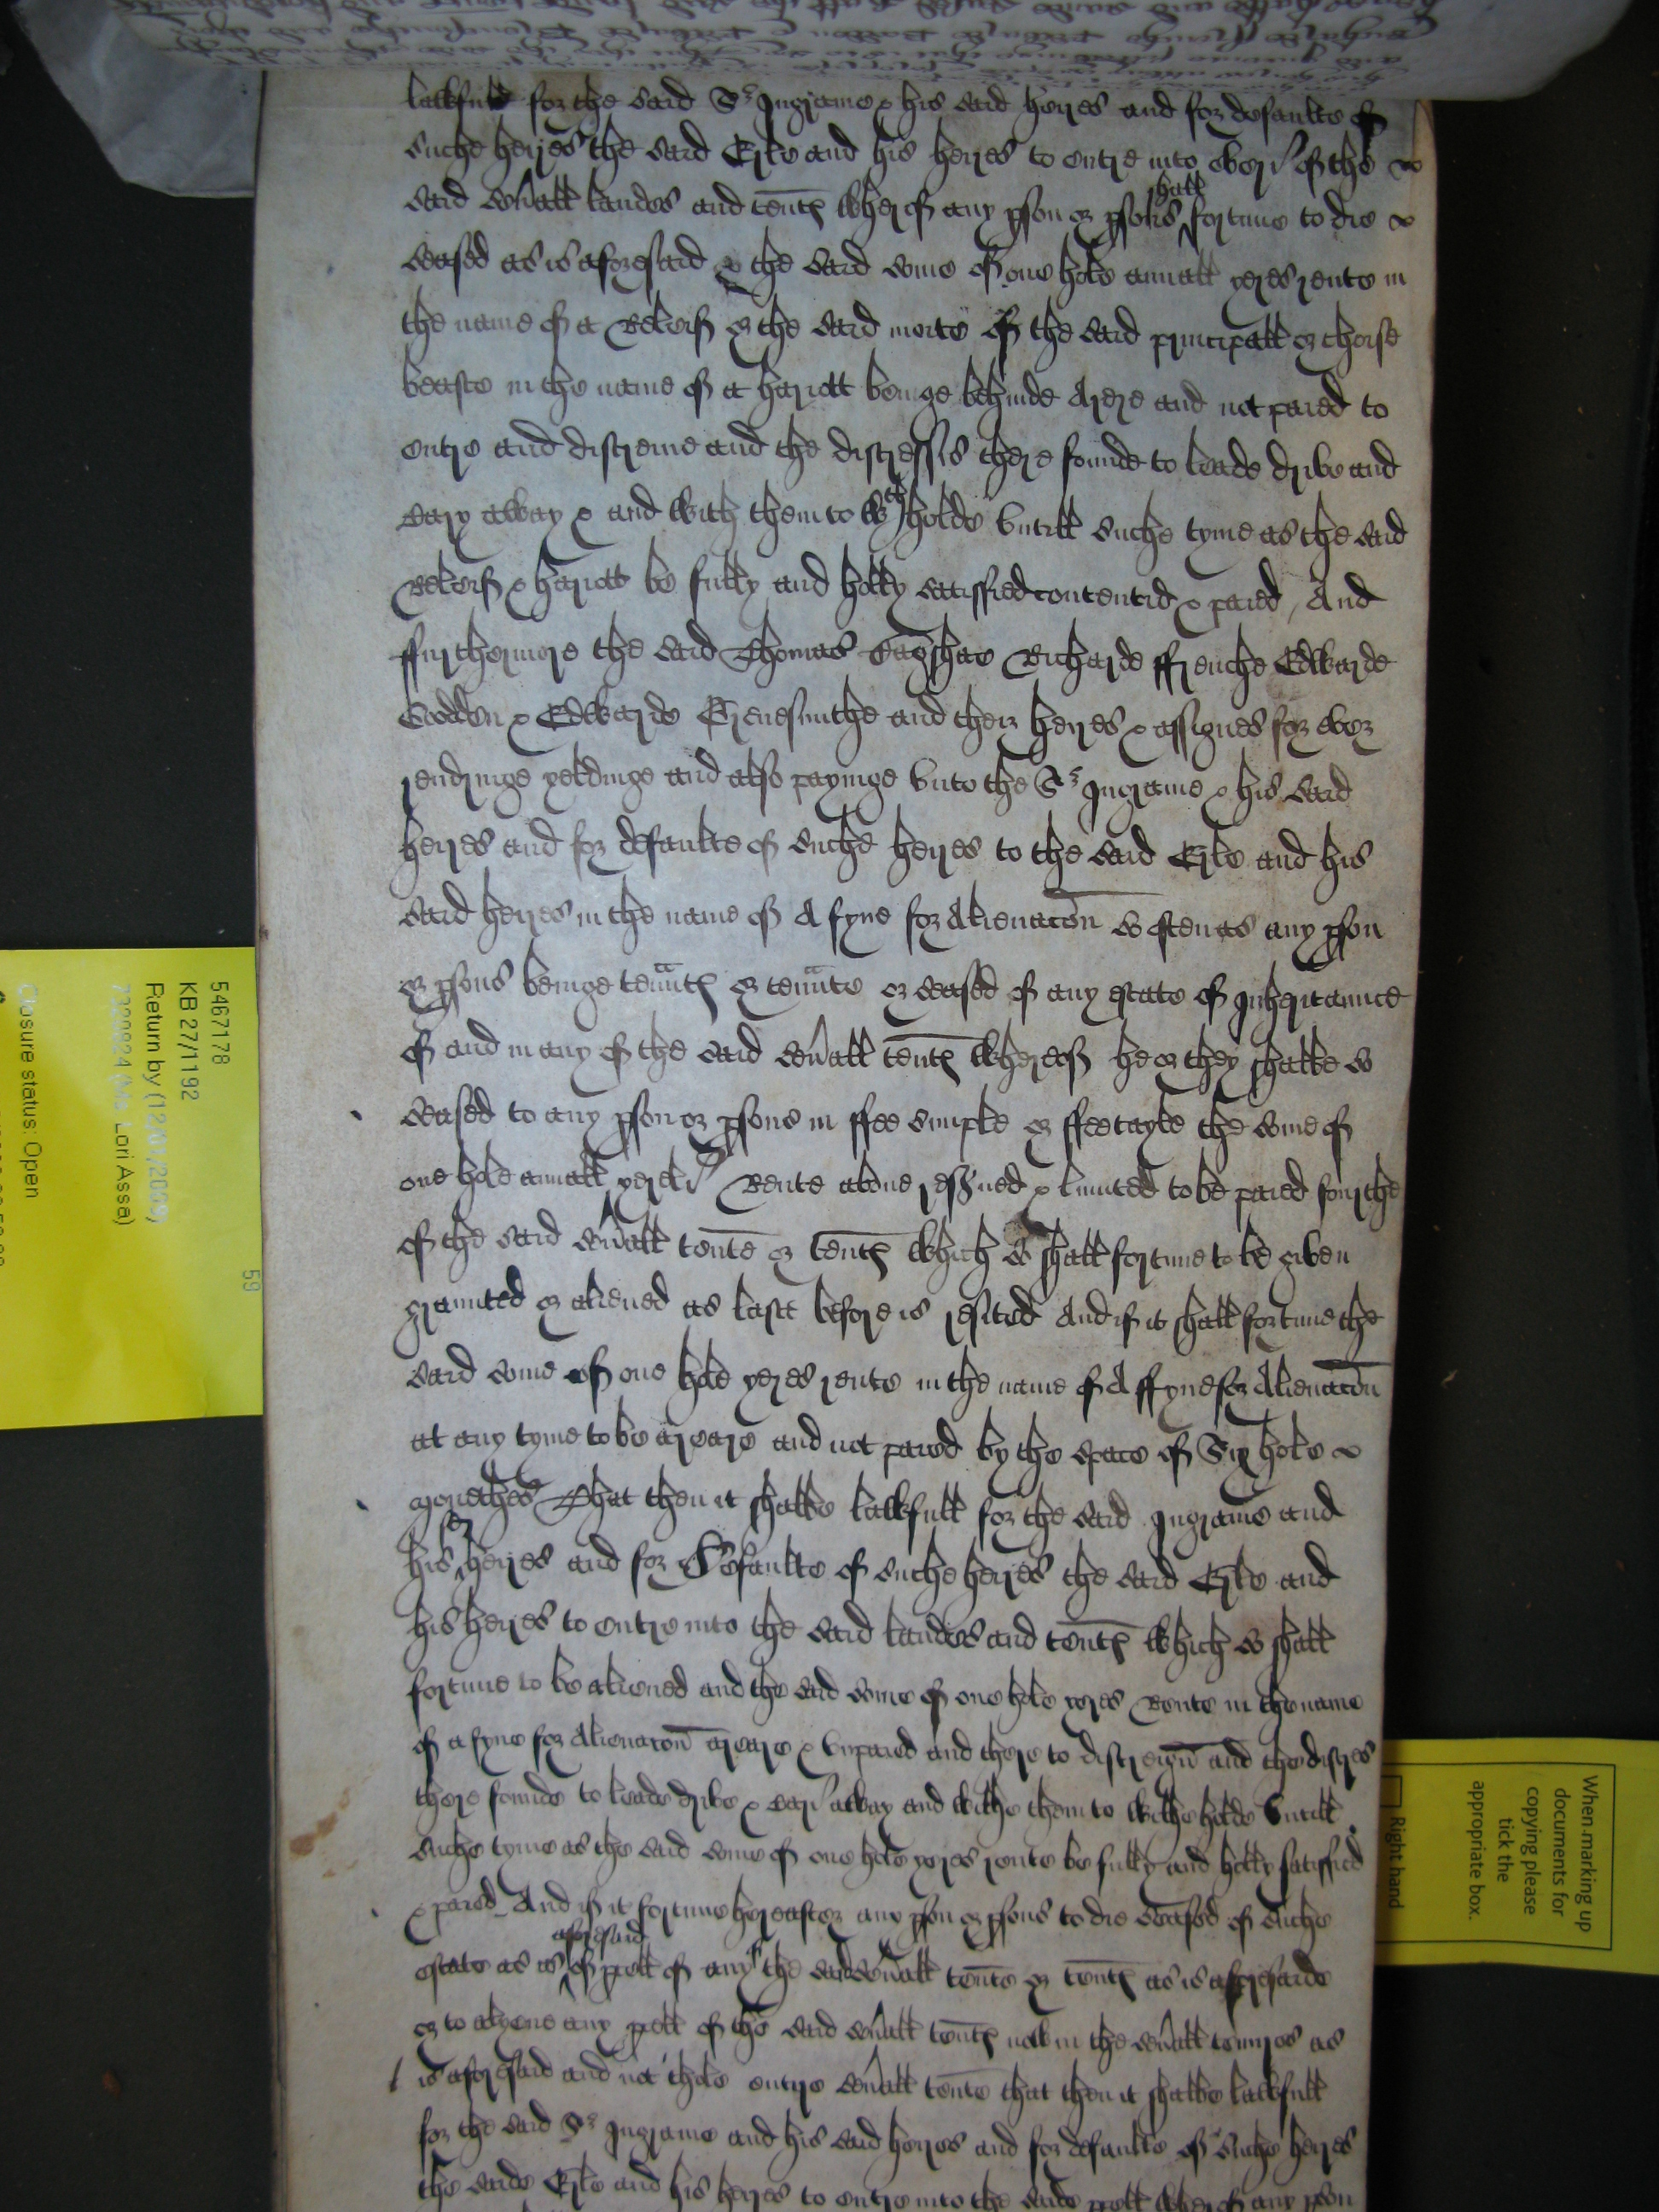 lawfull for the said Sr Ingrame & his said heyres and for defaulte of
suche heyres the said Erle and his heyres to entre into every of the
said sevall landes and tents wherof any pson or psons shall fortune to die
seased as is aforesaid & the said some of one hole annall yeres rente in
the name of a Releif or the said moite of the said principall or thoise
beaste in the name of a hariott beinge behinde Arere and not paied to
entre and distreine and the distressis there founde to leade drive and
cary away & and with them to wth holde untill suche tyme as the said
Releif & hariott be fully and holly satisfied contentid & paied And
ffurthermore the said Thomas Richarde ffrenche Edwarde
& Edwarde Grenesmithe and their heyres & assignes for ever
rendringe yeldinge and also payinge unto the Sr Ingrame & his said
heyres and for defaulte of suche heyres to the said Erle and his
said heyres in the name of A fyne for Alienacon so often as any pson
or psons beinge tennts or tennte or seased of any estate of Inheritannce
of and in any of the said sevall tents whereof he or they shalbe so
seased to any pson or psons in ffee simple or ffee tayle the some of
one hole annall yerely Rente above resved & limited to be paied fourthe
of the said sevall tente or tents which so shall fortune to be given
graunted or aliened as last before is resited And if it shall fortune the
said some of one hole yeres rente in the name of A ffyne for Alienacon
at any tyme to be areare and not paied by the space of Six hole
monethes That then it shalbe lawfull for the said Ingrame and
his heyres and for Defaulte of suche heyres the said Erle and
his heyres to entre into the said landes and tents which so shall
fortune to be aliened and the said some of one hole yeres Rente in the name
of a fyne for Alienacon areare & unpaied and there to distreyn and the distres
there founde to leade drive & cary away and withe them to withe holde untill
suche tyme as the said some of one hole yeres rente be fully and holly satisfied
& paied And if it fortune hereafter any pson or psons to die seased of suche
estate as is aforesaid of pcell of any of the said sevall tente or tents as is aforesaide
or to alyene any pcell of the said sevall tents now in the sevall tenures as
is aforesaid and not thole entire sevall tente that then it shalbe lawfull
for the said Sr Ingrame and his said heyres and for defaulte of suche heyres
the saide Erle and his heyres to entre into the saide pcell wherof any pson
5467178
KB 27/1192
Return by (12/01/2009)
Lori Assa)
Closure status: Open
59
When marking up
documents for
copying please
tick the
appropriate box.
Right hand